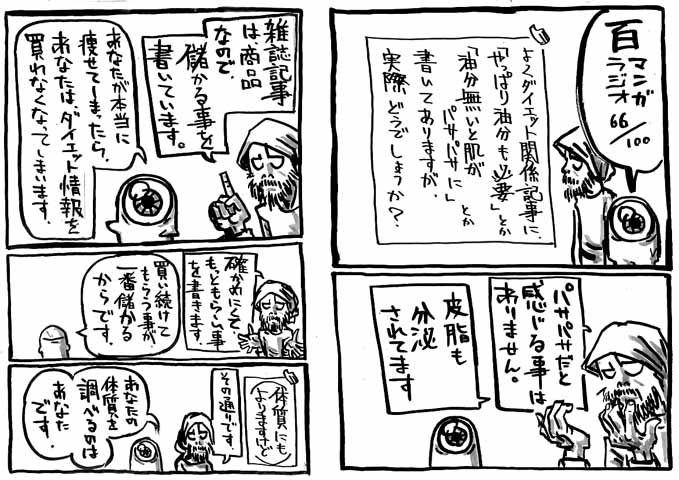 百
マンガ
ラジオ
66/100
よくダイエット関係記事に、
「やっぱり油分も必要」とか
「油分無いと肌が
パサパサに」とか
書いてありますが、
実際どうでしょうか？
パサパサだと
感じる事は
ありません。
皮脂も
外泌
されてます
雑誌記事
は、商品
なので、
儲かる事を
書いています。
あなたが本当に
痩せてしまったら、
あなたは、ダイエット情報を
買わなくなってしまいます。
確かめにくくて、
もっともらしい事
を書きます。
買い続けて
もらう事が、
一番儲かる
からです。
体質にも
よりますけど
その通りです。
あなたの
体質を
調べるのは
あなた
です。